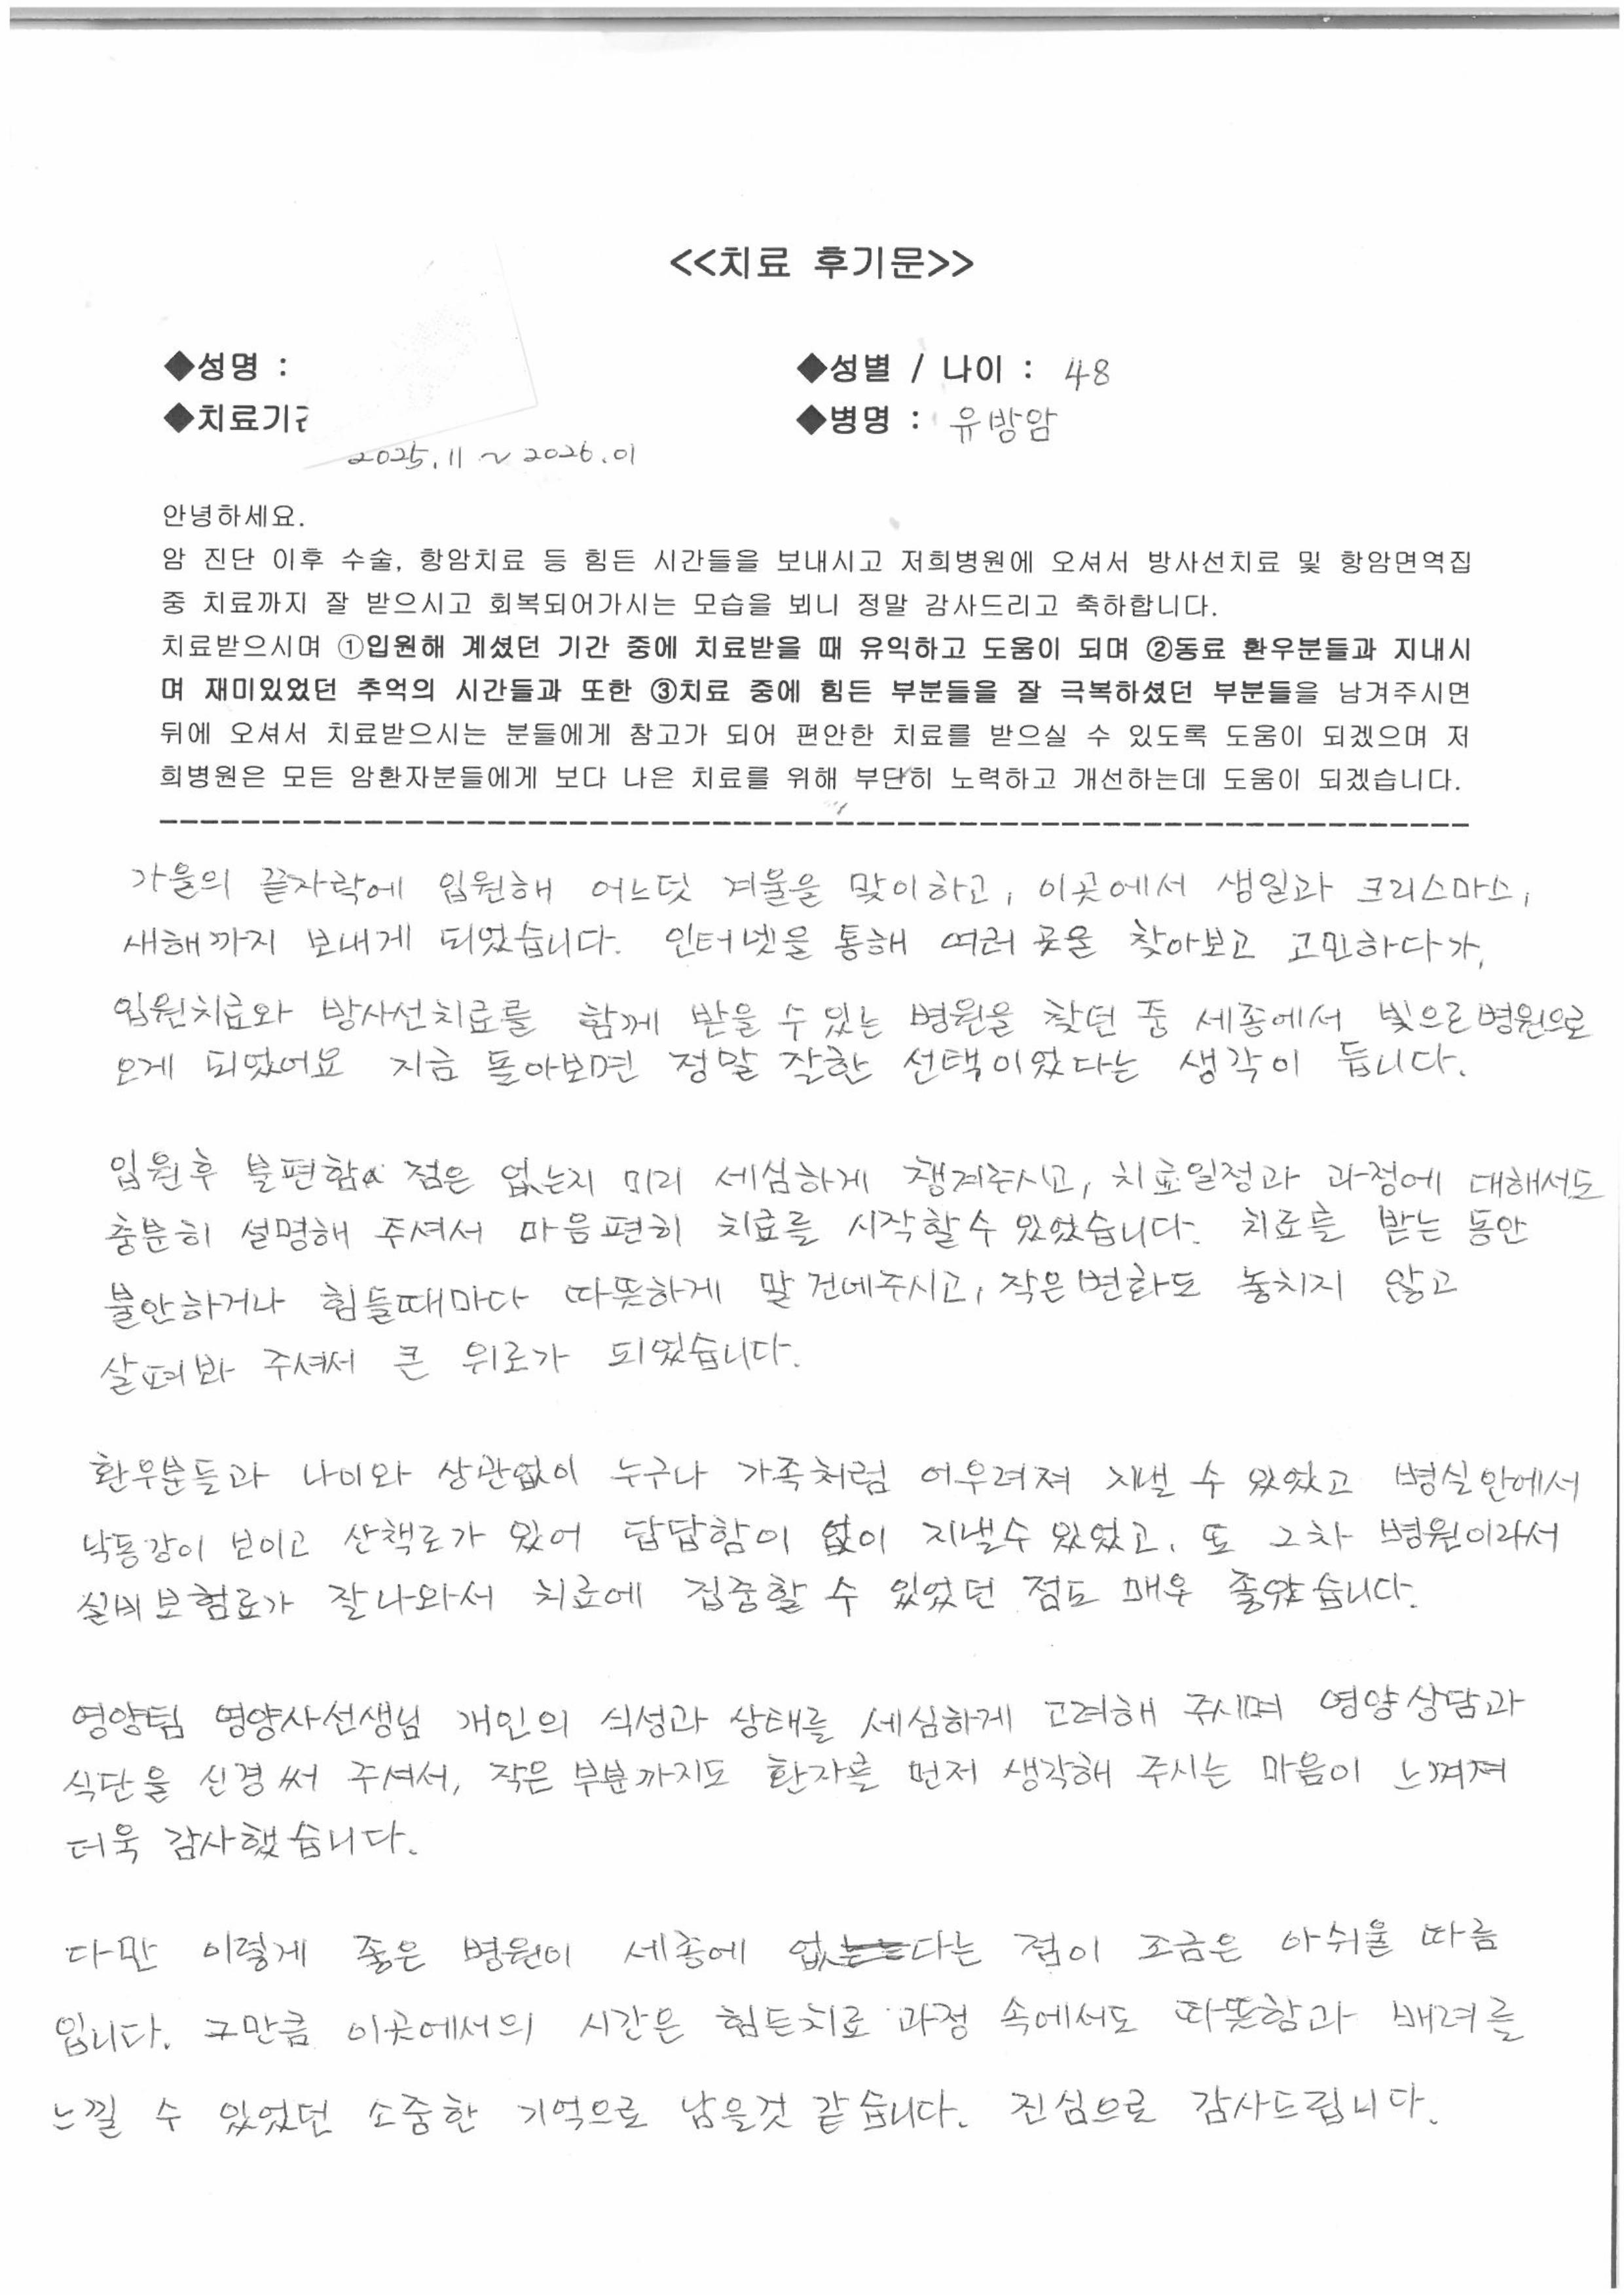 <<치료 후기문>>
◆성명 :
◆성별 / 나이 : 48
◆치료기간
◆병명 : 유방암
2025.11 ~ 2026.01
안녕하세요.
암 진단 이후 수술, 항암치료 등 힘든 시간들을 보내시고 저희병원에 오셔서 방사선치료 및 항암면역집
중 치료까지 잘 받으시고 회복되어가시는 모습을 뵈니 정말 감사드리고 축하합니다.
치료받으시며 ①입원해 계셨던 기간 중에 치료받을 때 유익하고 도움이 되며 ②동료 환우분들과 지내시
며 재미있었던 추억의 시간들과 또한 ③치료 중에 힘든 부분들을 잘 극복하셨던 부분들을 남겨주시면
뒤에 오셔서 치료받으시는 분들에게 참고가 되어 편안한 치료를 받으실 수 있도록 도움이 되겠으며 저
희병원은 모든 암환자분들에게 보다 나은 치료를 위해 부단히 노력하고 개선하는데 도움이 되겠습니다.
가을의 끝자락에 입원해 어느덧 겨울을 맞이하고, 이곳에서 생일과 크리스마스,
새해까지 보내게 되었습니다. 인터넷을 통해 여러 곳을 찾아보고 고민하다가,
입원치료와 방사선치료를 함께 받을 수 있는 병원을 찾던 중 세종에서 빛으로병원으로
오게 되었어요 지금 돌아보면 정말 잘한 선택이었다는 생각이 듭니다.
입원후 불편함 점은 없는지 미리 세심하게 챙겨주시고, 치료일정과 과정에 대해서도
충분히 설명해 주셔서 마음편히 치료를 시작할수 있었습니다. 치료를 받는 동안
불안하거나 힘들때마다 따뜻하게 말 건네주시고, 작은 변화도 놓치지 않고
살펴봐 주셔서 큰 위로가 되었습니다.
환우분들과 나이와 상관없이 누구나 가족처럼 어우려져 지낼 수 있었고 병실안에서
낙동강이 보이고 산책로가 있어 답답함이 없이 지낼수 있었고, 또 2차 병원이라서
실비보험료가 잘나와서 치료에 집중할 수 있었던 점도 매우 좋았습니다.
영양팀 영양사선생님 개인의 식성과 상태를 세심하게 고려해 주시며 영양상담과
식단을 신경써 주셔서, 작은 부분까지도 환자를 먼저 생각해 주시는 마음이 느껴져
더욱 감사했습니다.
다만 이렇게 좋은 병원이 세종에 없다는 점이 조금은 아쉬울 따름
입니다. 그만큼 이곳에서의 시간은 힘든치료 과정 속에서도 따뜻함과 배려를
느낄 수 있었던 소중한 기억으로 남을것 같습니다. 진심으로 감사드립니다.